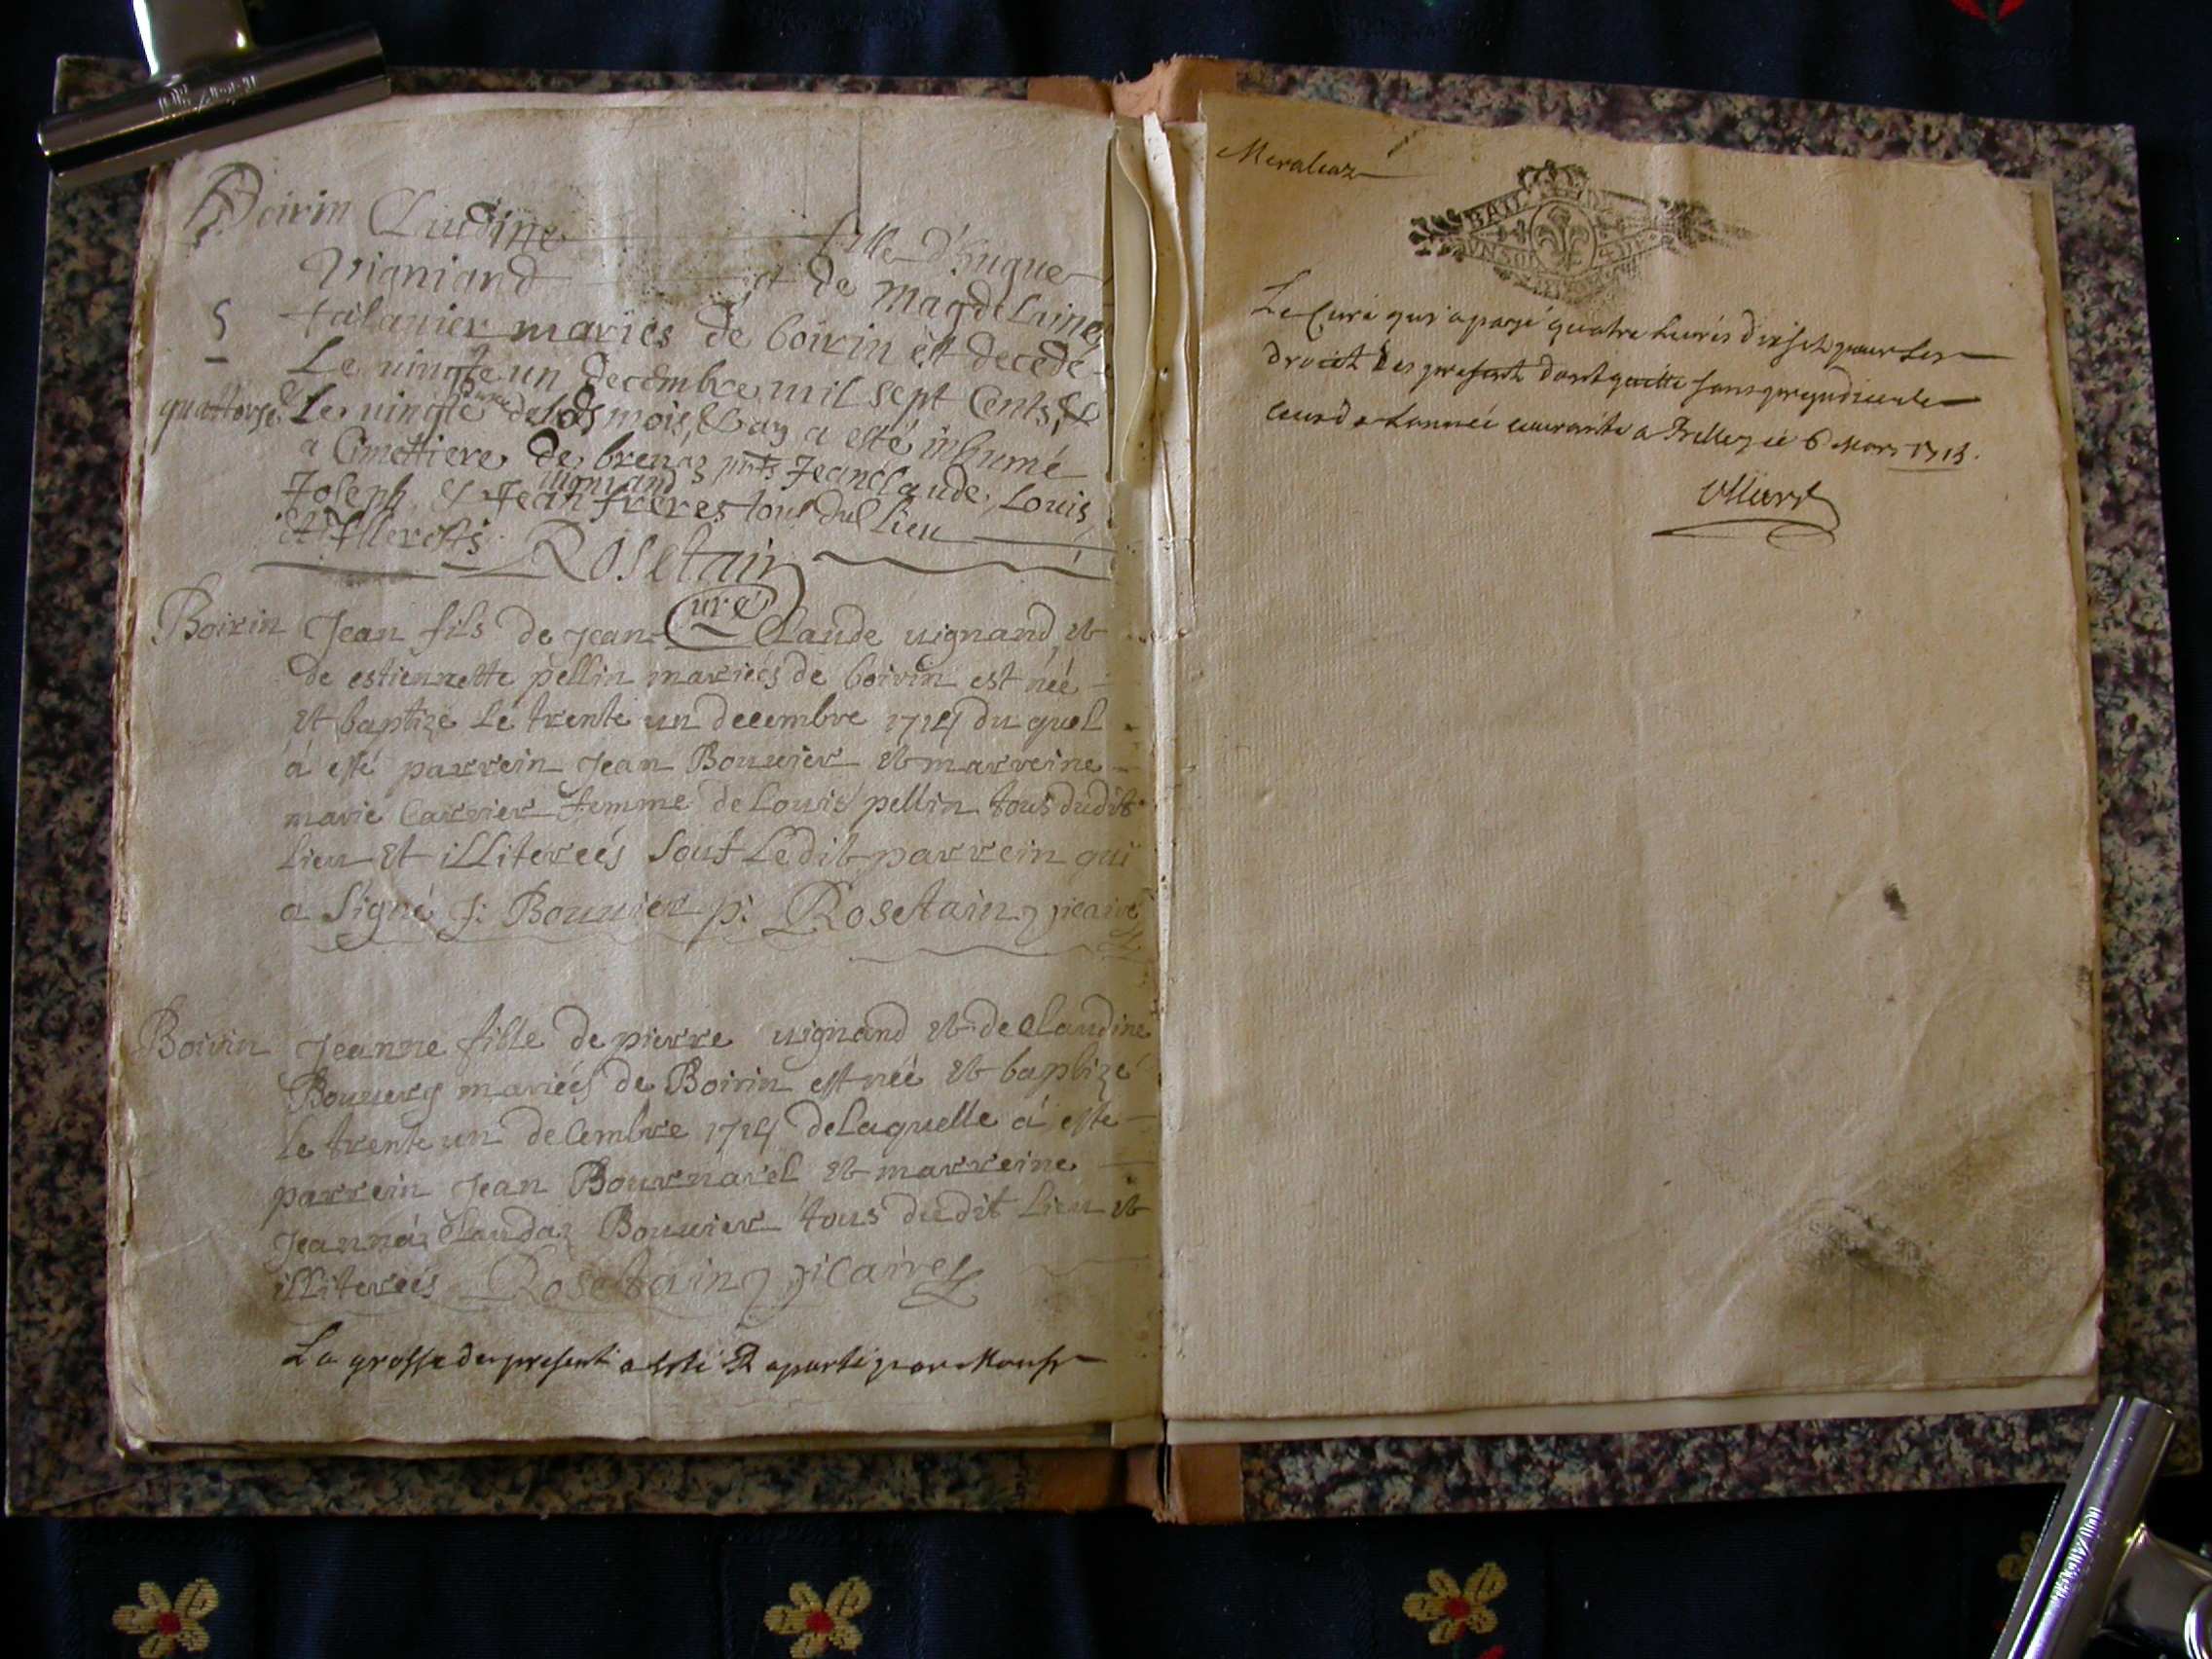 Boirin Cludine fille d'hugue
Vigniand et de magdelaine
talanier mariés de boirin est decedé
5 Le vingte un decembre mil sept Cents, &
quattorse, & Le vingte deux mois, & an a esté inhumé
a Cimettiere de brenaz Jeanclaude, Louis,
Joseph, & Jean vigniand freres tous dud lieu
et Illerests Rosetain
Curé
Boirin Jean fils de Jean Claude uignand, et
de estiennette pellin mariées de boirin est née
et baptizé le trente un decembre 1714 du quel
á esté parrein Jean Bouuier et marreine
marie Carrier femme de Louis pellin tous dudit
lieu et illitereés sauf Ledit parrein qui
a signé j: Bouuier p: Rosetain vicaire
Boirin Jeanne fille de pierre uignand et de Claudine
mariées de Boirin est née et baptizé
le trente un decembre 1714 de laquelle á esté
parrein Jean Bournarel et marreine
Jeanná Claudaz Bouuier tous dudit lieu et
illitereés Rosetain vicaire
La grosse des present a esté R aporté par Monsr
Meraleaz
BAIL
UN SOL 4 DE
Le Curé qui a payé quatre livres dix sept pour les
droict des present dont quitte sans prejudice de
ceux de l'année courante a ce 6 Mars 1715.